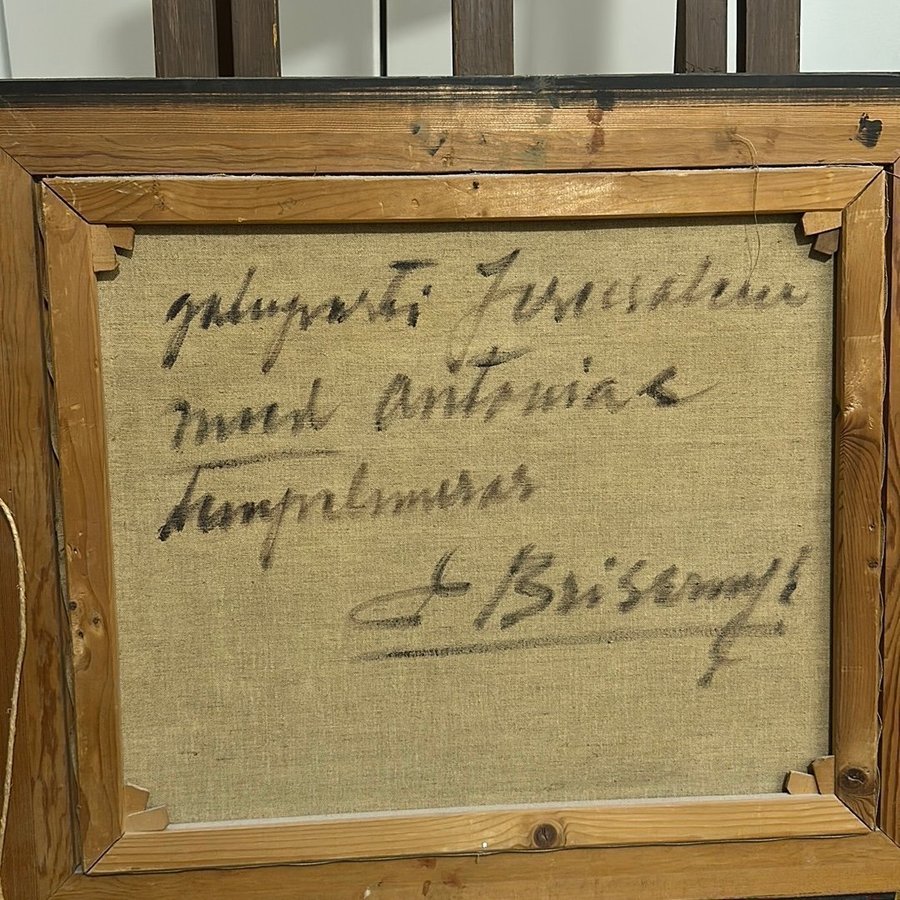 gatuparti Jerusalem
med Antonias
tempelmurar